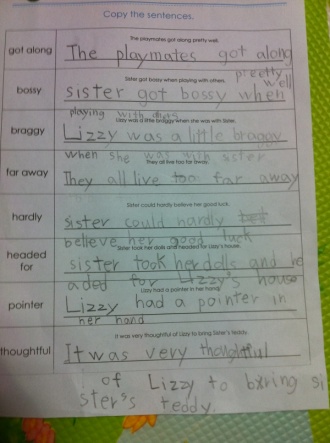 Copy the sentences.
The playmates got along pretty well.
got along
The playmates got along
preetty
well
Sister got bossy when playing with others.
bossy
sister got bossy when
playing with
Lizzy was a little braggy when she was with Sister.
braggy
Lizzy was a little braggy
when she was with sister
They all live too far away.
far away
They all live too far away
Sister could hardly believe her good luck.
hardly
sister could hardly
believe her good luck
Sister took her dolls and headed for Lizzy's house.
headed for
sister took her dolls and he
aded for Lizzy's house
Lizzy had a pointer in her hand.
pointer
Lizzy had a pointer in
her hand
It was very thoughtful of Lizzy to bring Sister's teddy.
thoughtful
It was very thoughtful
of Lizzy to bxring si
ster's teddy.